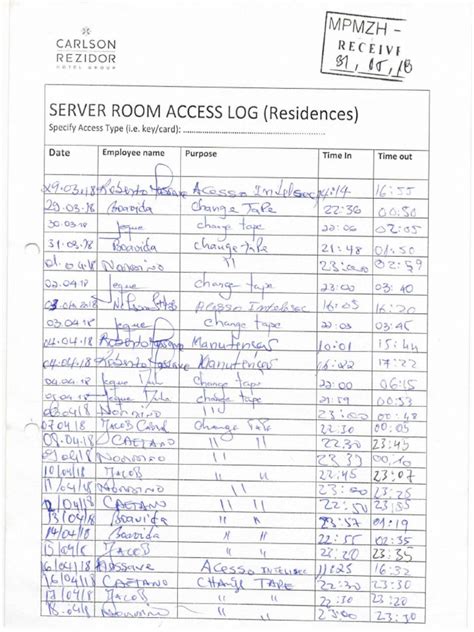 CARLSON
REZIDOR
HOTEL GROUP
MPMZH -
RECEIVE
31, 05, 18
SERVER ROOM ACCESS LOG (Residences)
Specify Access Type (i.e. key/card):
Date Employee name Purpose Time In Time out
29.03.18 Roberto Acesso Intelsec 14:14 16:55
29.03.18 Boavida Change Tape 22:36 00:50
30.03.18 Jeque change tape 22:06 02:05
31.03.18 Boavida Change Tape 21:48 01:50
01.04.18 Nordino 11 02:59
02.04.18 Jeque change tape 23:00 03:40
03.04.18 Acesso Intelisec 16:05 16:20
03.04.18 Jeque change tape 22:03 03:45
04.04.18 Roberto Manutenção 10:01 15:44
04.04.18 Roberto Manutenção 16:22 17:22
Jeque Change tape 22:00 06:15
Jeque change tape 21:59 00:53
Nordino 11 23:00 00:48
07/04/18 Jacob Change Tape 22:30 00:05
08.04.18 Caetano 11 11 22.30 23:45
Nordino 11 23.39 00.10
10/04/18 Jacob 11 11 22:45 23:07
11/04/18 Nordino 11 23:00 23:25
12/04/18 Caetano 11 11 22:30 23:28
13/04/18 Boavida 11 23:57 01:19
14/04/18 Boavida 11 22:55 02:50
Jacob 11 22:20 23:35
16/04/18 Acesso Intelisec 11:25 16:32
16/04/18 Caetano Change Tape 22:30 23:30
17/04/18 Jacob 11 22:00 23:38
18.04/18 Nordino 11 23:00 23:30